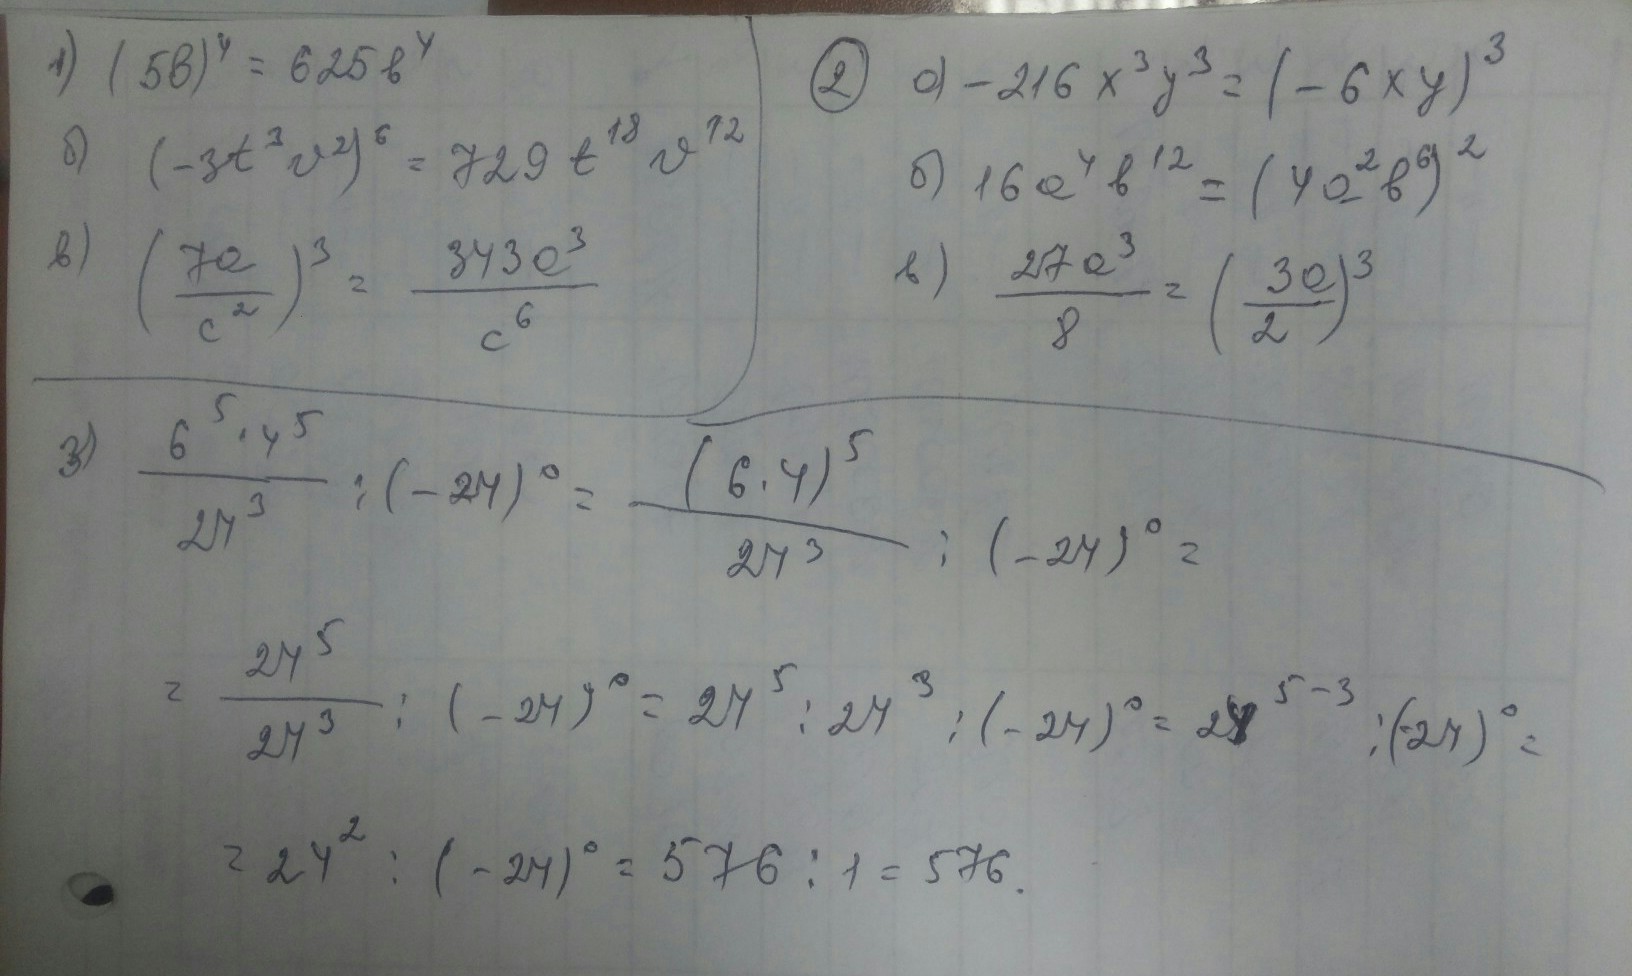 1) (5в)⁴ = 625в⁴
б) (-3t³v²)⁶ = 729 t¹⁸ v¹²
в) (7a/c²)³ = 343a³/c⁶
② а) -216 x³y³ = (-6xy)³
б) 16a⁴в¹² = (4a²в⁶)²
в) 27a³/8 = (3a/2)³
3) 6⁵·4⁵/24³ : (-24)⁰ = (6·4)⁵/24³ : (-24)⁰ =
= 24⁵/24³ : (-24)⁰ = 24⁵ : 24³ : (-24)⁰ = 24⁵⁻³ : (-24)⁰ =
= 24² : (-24)⁰ = 576 : 1 = 576.